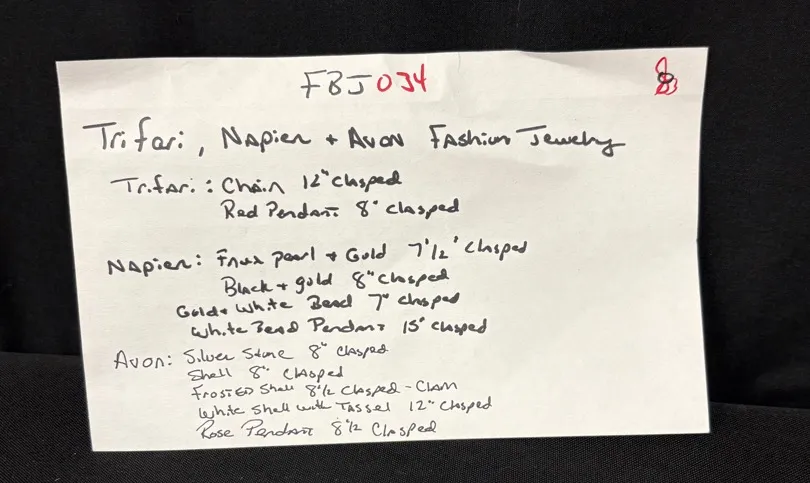 FBJ034
8
Trifari, Napier + Avon Fashion Jewelry
Trifari: Chain 12" Clasped
Red Pendant 8" Clasped
Napier: Faux pearl + Gold 7 1/2" Clasped
Black + gold 8" Clasped
Gold + White Bead 7" Clasped
White Bead Pendant 15" Clasped
Avon: Silver Stone 8" Clasped
Shell 8" Clasped
Frosted Shell 8 1/2 Clasped - Clam
White Shell with Tassel 12" Clasped
Rose Pendant 8 1/2 Clasped